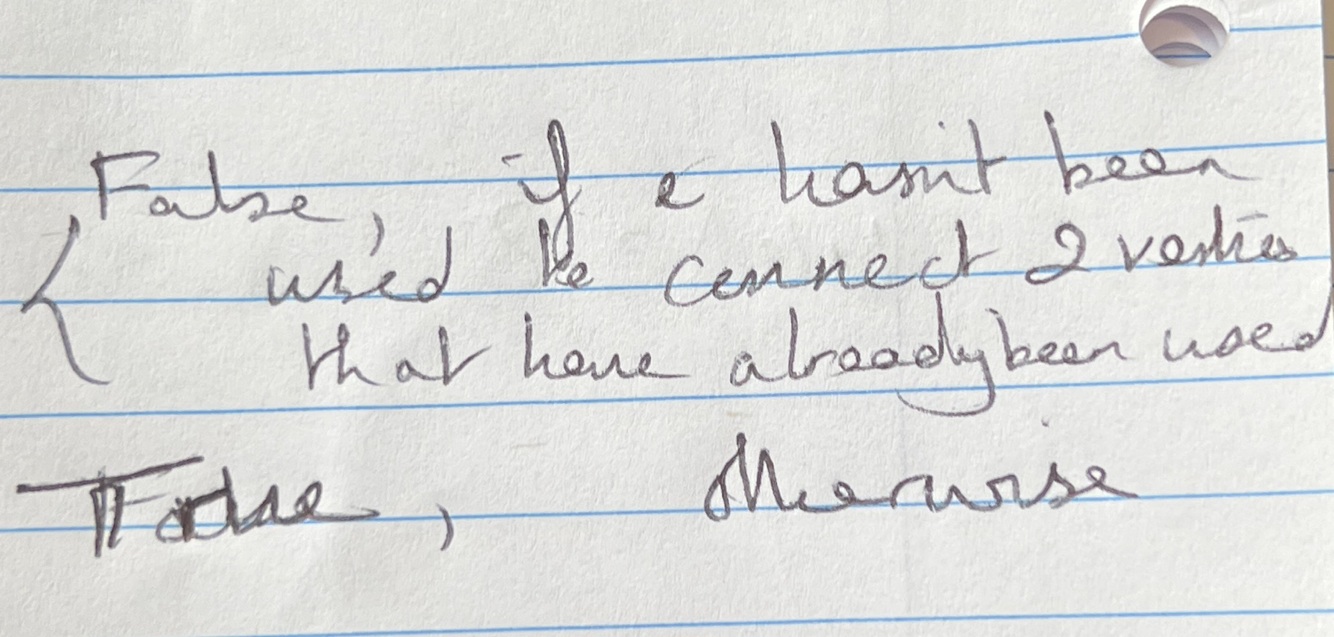 False, if e hasn't been
used to connect 2 vertices
that have already been used
True, otherwise